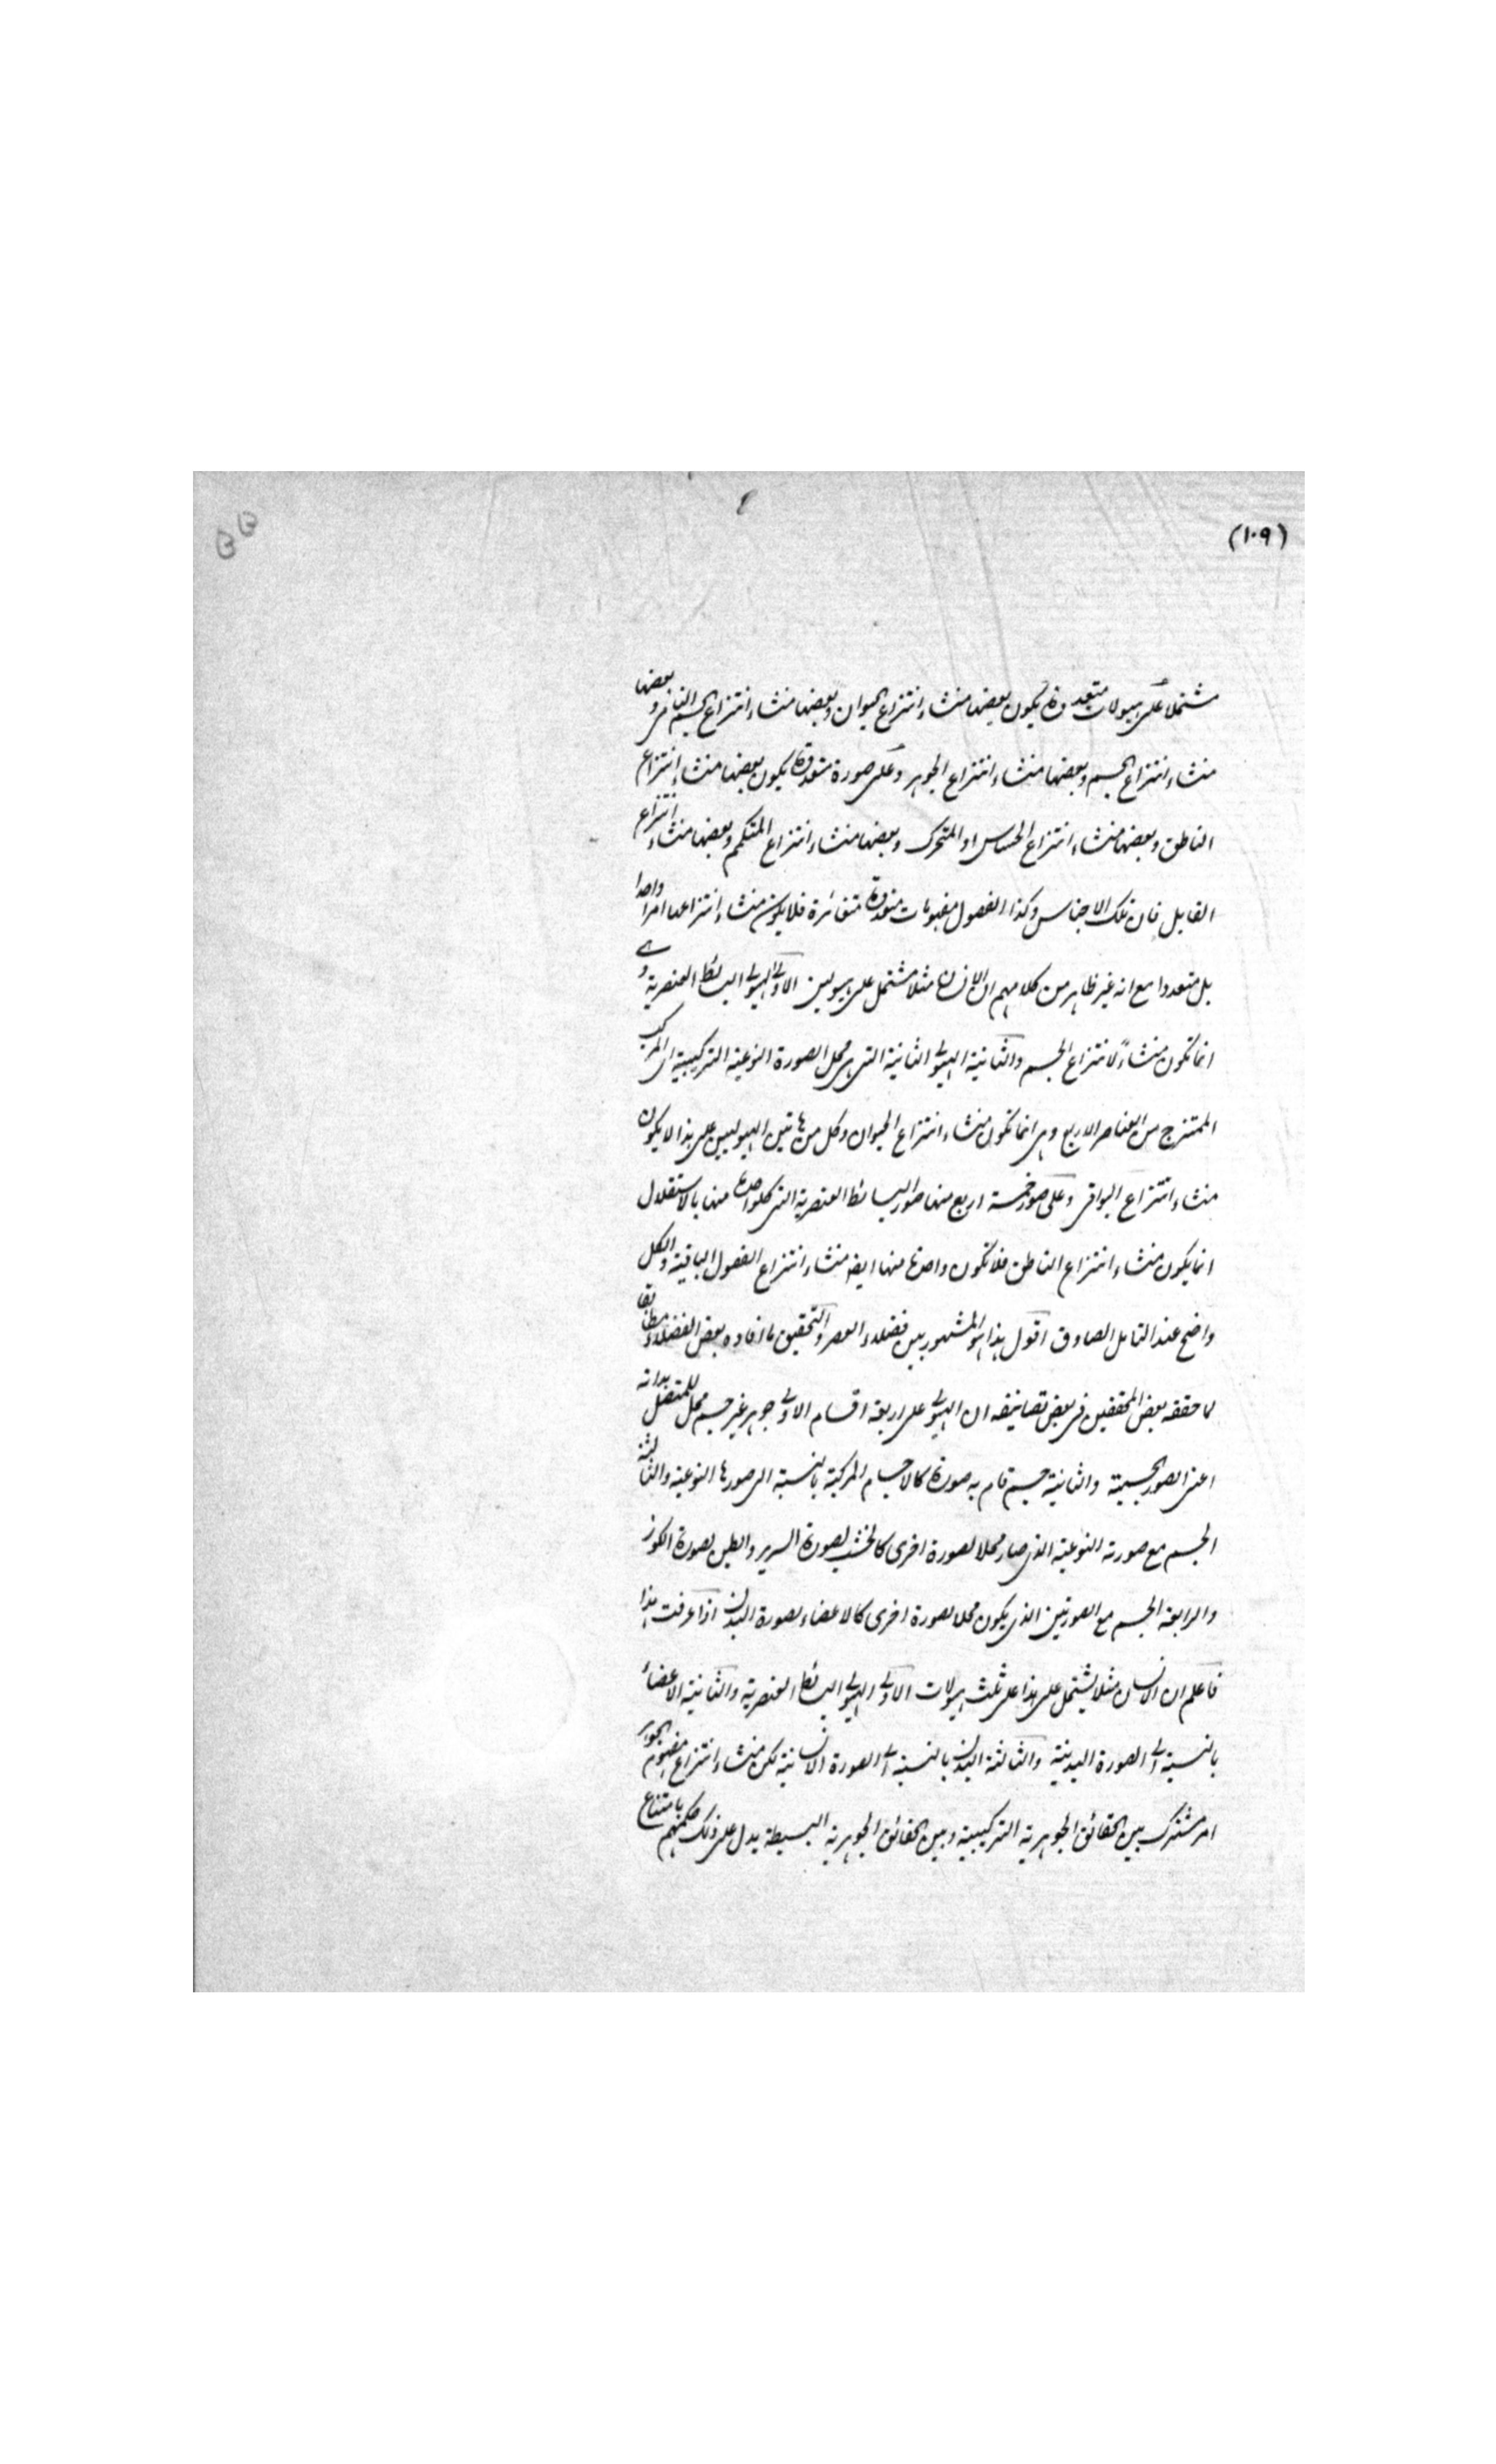 (١٠٩)
مشتملا على هيولات متعددة يكون بعضها منشاء انتزاع الحيوان وبعضها منشاء انتزاع الجسم النامى وبعضها
منشاء انتزاع الجسم وبعضها منشاء انتزاع الجوهر وعلى صورة متعددة يكون بعضها منشاء انتزاع
الناطق وبعضها منشاء انتزاع الحساس او المتحرك وبعضها منشاء انتزاع المتكمم وبعضها منشاء انتزاع
القابل فان تلك الاجناس وكذا الفصول مفهومات متعددة متغائرة فلا يكون منشاء انتزاعها امرا واحدا
بل متعددا مع انه غير ظاهر من كلامهم ان الانسان مثلا مشتمل على هيوليين الاولى الهيولى البسائط العنصرية وهى
انما تكون منشاءً لانتزاع الجسم والثانية الهيولى الثانية التى هى محل الصورة النوعية التركيبية اى المركب
الممتزج من العناصر الاربع وهى انما تكون منشاء انتزاع الحيوان وكل من هاتين الهيوليين على هذا لا يكون
منشاء انتزاع البواقى وعلى صور خمسة اربع منها صور البسائط العنصرية التى كل واحدة منها بالاستقلال
انما يكون منشاء انتزاع الناطق فلا تكون واحدة منها ايضه منشاء انتزاع الفصول الباقية والكل
واضح عند التامل الصادق اقول هذا هو المشهور بين فضلاء العصر والتحقيق ما افاده بعض الفضلاء مطابقا
لما حققه بعض المحققين فى بعض تصانيفه ان الهيولى على اربعة اقسام الاولى جوهر غير جسم محل للمتصل بذاته
اعنى الصور الجسمية والثانية جسم قام به صورة كالاجسام المركبة بالنسبة الى صورها النوعية والثالثة
الجسم مع صورته النوعية الذى صار محلا لصورة اخرى كالخشب لصورة السرير والطين لصورة الكوز
والرابعة الجسم مع الصورتين الذى يكون محلا لصورة اخرى كالاعضاء لصورة البدن اذا عرفت هذا
فاعلم ان الانسان مثلا يشتمل على هذا على ثلث هيولات الاولى الهيولى البسائط العنصرية والثانية الاعضاء
بالنسبة الى الصورة البدنية والثالثة البدن بالنسبة الى الصورة الانسانية لكن منشاء انتزاع مفهوم الجوهر
امر مشترك بين الحقائق الجوهرية التركيبية وبين الحقائق الجوهرية البسيطة يدل على ذلك حكمهم بامتناع